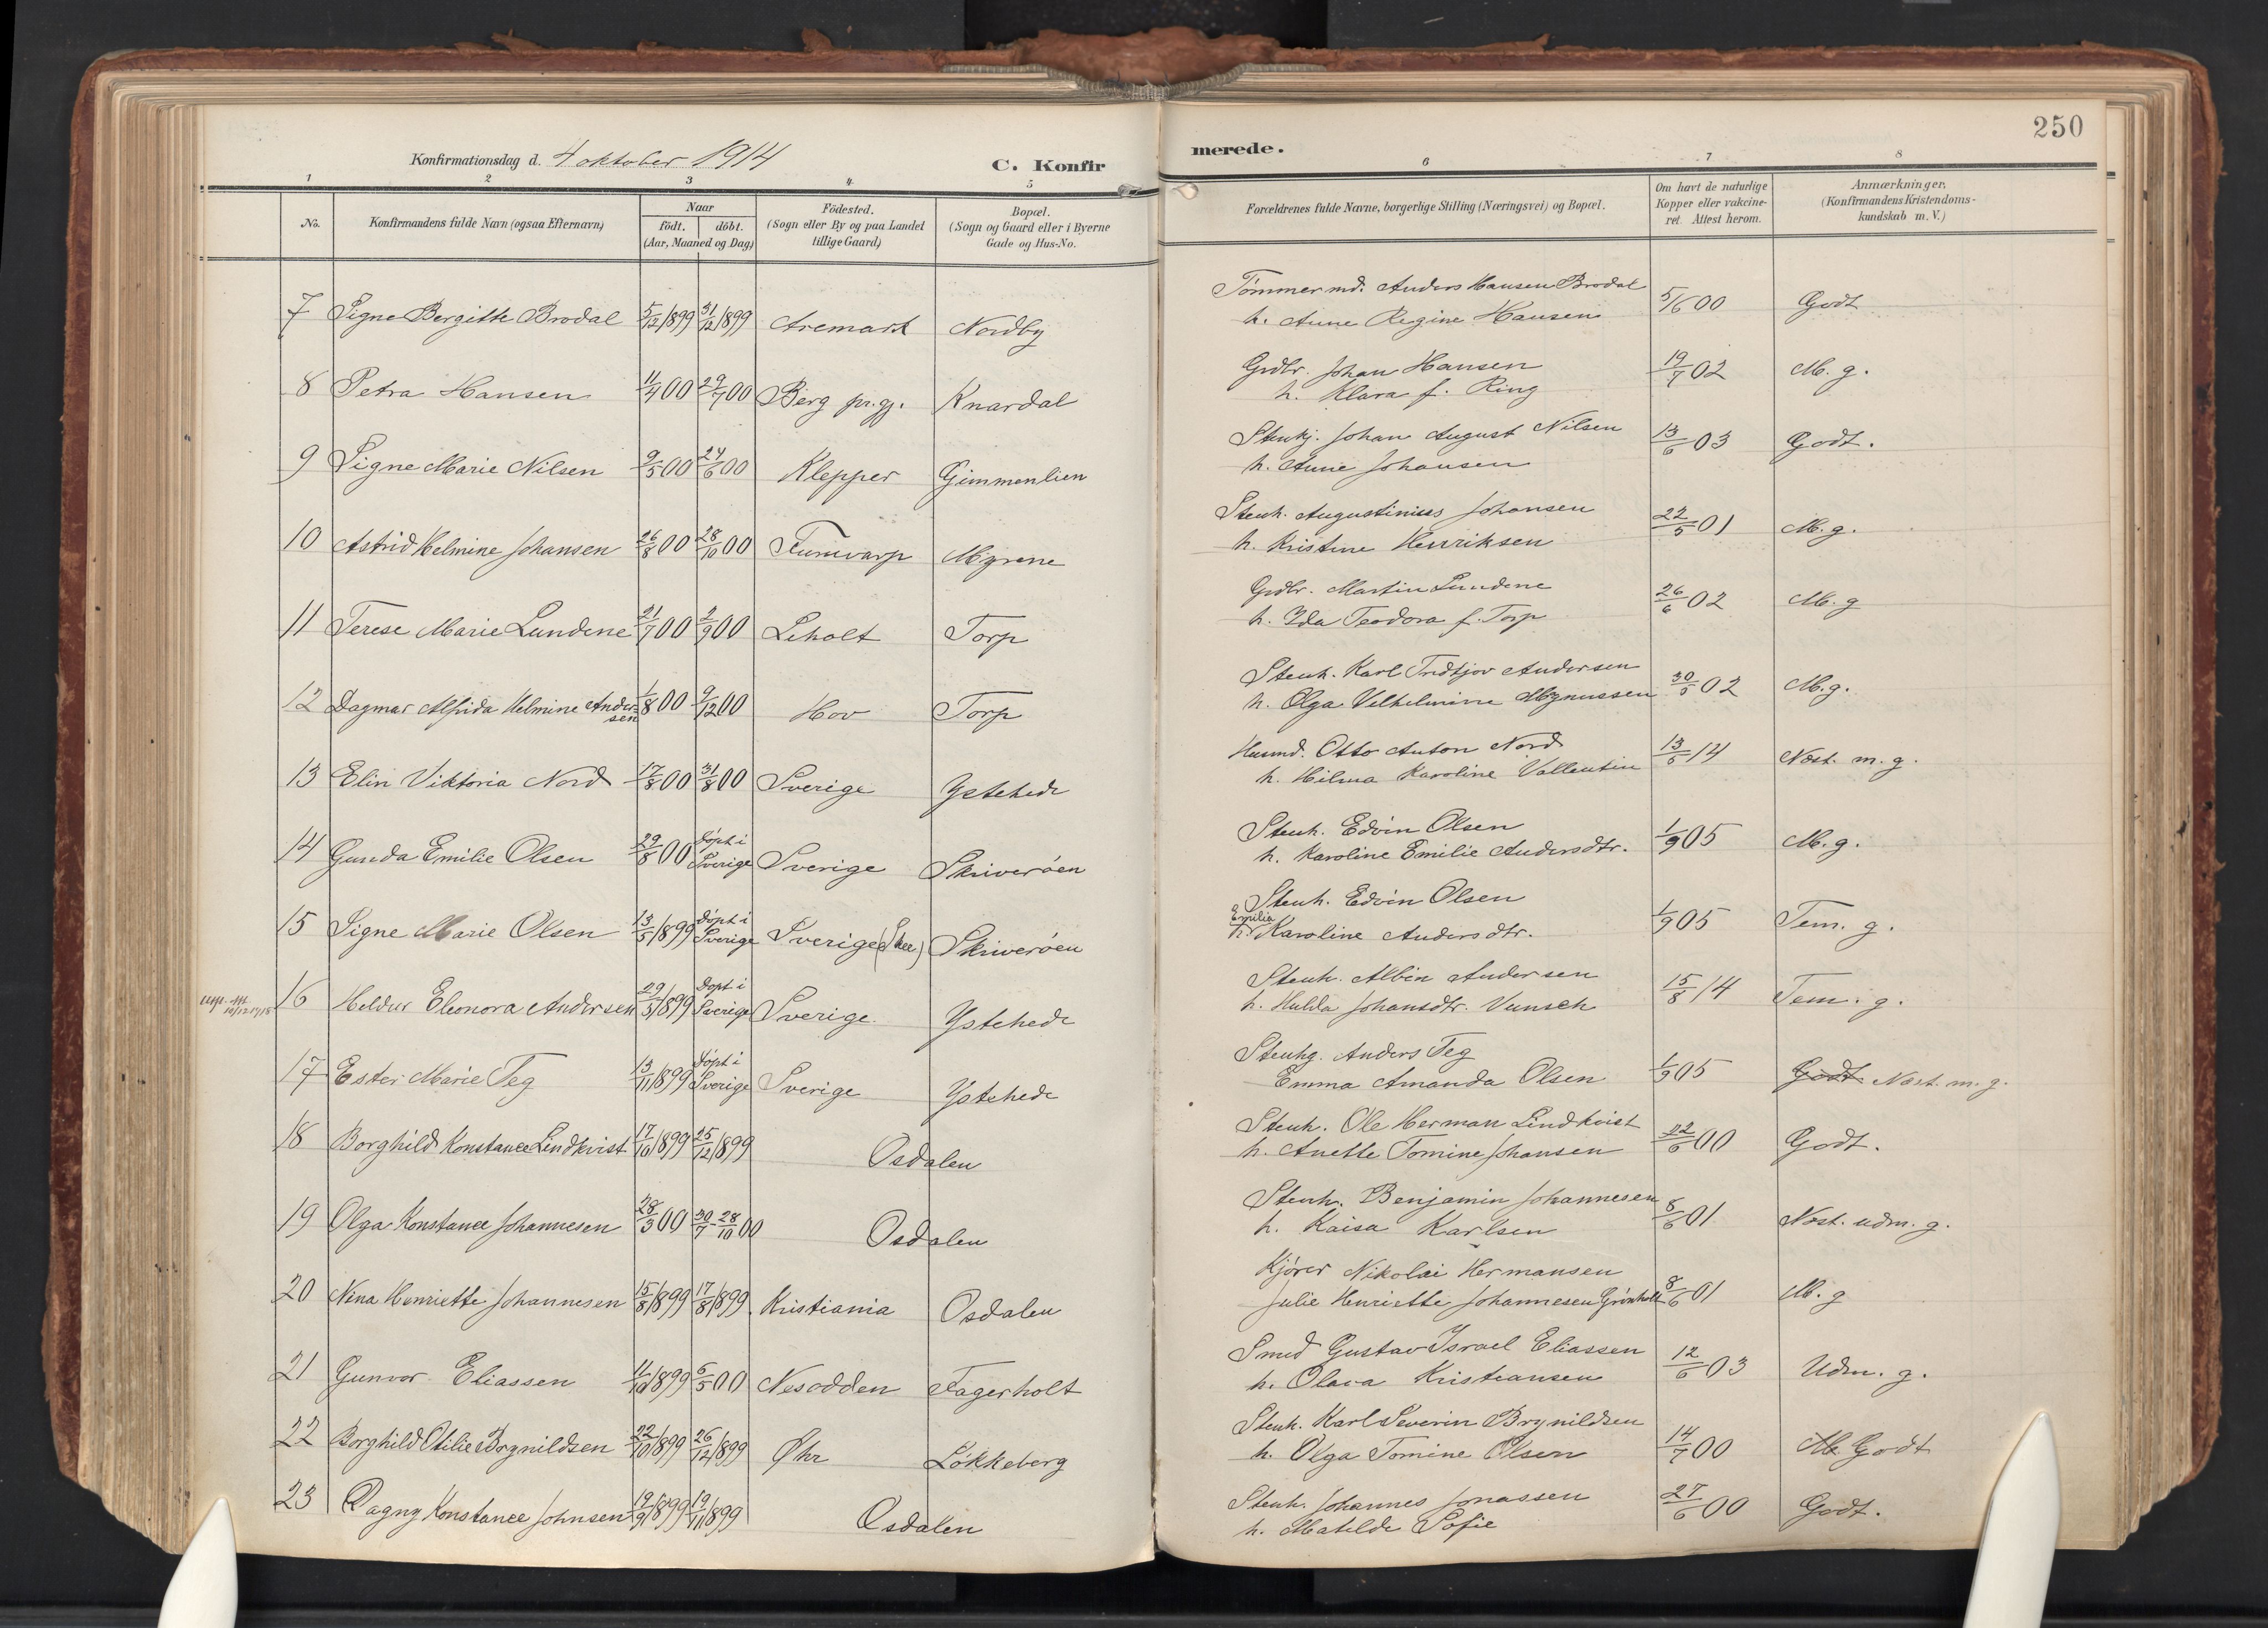 250
Konfirmationsdag d. 4 oktober 1914
C. Konfir
merede.
1 2 3 4 5 6 7 8
No. Konfirmandens fulde Navn (ogsaa Efternavn) Naar födt. döbt. (Aar, Maaned og Dag) Födested. (Sogn eller By og paa Landet tillige Gaard) Bopæl. (Sogn og Gaard eller i Byerne Gade og Hus-No. Forældrenes fulde Navne, borgerlige Stilling (Næringsvei) og Bopæl. Om havt de naturlige Kopper eller vakcineret. Attest herom. Anmærkninger. (Konfirmandens Kristendomskundskab m. V.)
7 Signe Bergitte Brodal 5/12 1899 31/12 1899 Aremark Nordby Tömmermd. Anders Hansen Brodal
h. Anne Regine Hansen 5/6 00 Godt
8 Petra Hansen 11/4 00 29/7 00 Berg pr.gj. Knardal Grdbr. Johan Hansen
h. Klara f. Ring 19/7 02 M. g.
9 Signe Marie Nilsen 9/5 00 24/6 00 Klepper Gimmenlien Stenhj. Johan August Nilsen
h. Anne Johansen 13/6 03 Godt.
10 Astrid Helmine Johansen 26/8 00 28/10 00 Myrene Stenh. Augustinius Johansen
h. Kristine Henriksen 22/5 01 M. g.
11 Terese Marie Lundene 21/7 00 2/9 00 Leholt Torp Grdbr. Martin Lundene
h. Ida Teodora f. Torp 26/6 02 M. g
12 Dagmar Alfrida Helmine Ander=
sen 1/8 00 9/12 00 Hov Torp Stenh. Karl Fridtjov Andersen
h. Olga Velhelmine Magnussen 30/5 02 M. g.
13 Elin Viktoria Nord 17/8 00 31/8 00 Sverige Ystehede Husmd. Otto Anton Nord
h. Hilma Karoline Vallentin 13/6 14 Næst. m. g.
14 Gunda Emilie Olsen 29/8 00 döpt i Sverige Sverige Skriveröen Stenh. Edvin Olsen
h. Karoline Emilie Andersdtr. 1/9 05 M. g.
15 Signe Marie Olsen 13/5 1899 döpt i Sverige Sverige (Skee) Skriveröen Stenh. Edvin Olsen
Emilia
h. Karoline Andersdtr. 1/9 05 Tem. g.
16 Heldur Eleonora Andersen 29/3 1899 Döpt i Sverige Sverige. Ystehede Stenh. Albin Andersen
h. Hulda Johansdtr. Vunsch 15/8 14 Tem. g.
17 Ester Marie Teg 13/11 1899 Döpt i Sverige Sverige Ystehede Stenhg. Anders Teg
Emma Amanda Olsen 1/9 05 Godt Næst. m. g.
18 Borghild Konstance Lindkvist 17/10 1899 25/12 1899 Osdalen Stenh. Ole Herman Lindkvist
h. Anette Tomine Johansen 22/6 00 Godt.
19 Olga Konstance Johannesen 28/3 00 30/7 - 28/10 00 Osdalen Stenh. Benjamin Johannesen
h. Kaisa Karlsen 8/6 01 Næst. udm. g.
20 Nina Henriette Johannesen 15/8 1899 17/8 1899. Kristiania Osdalen Kjörer Nikolai Hermansen
Julie Henriette Johannesen Grönholt 8/6 01 M. g
21 Gunvor Eliassen 11/10 1899 6/5 00 Nesodden Fagerholt Smed Gustav Israel Eliassen
h. Olava Kristiansen 12/6 03 Udm. g.
22 Borghild Otilie Brynildsen 22/10 1899 26/12 1899 Øhr Lökkeberg Stenh. Karl Severin Brynildsen
h. Olga Tomine Olsen 14/7 00 M. Godt
23 Dagny Konstance Johnsen 19/9 1899 19/11 1899 Osdalen Stenh. Johannes Jonassen
h. Matilde Sofie 27/6 00 Godt.